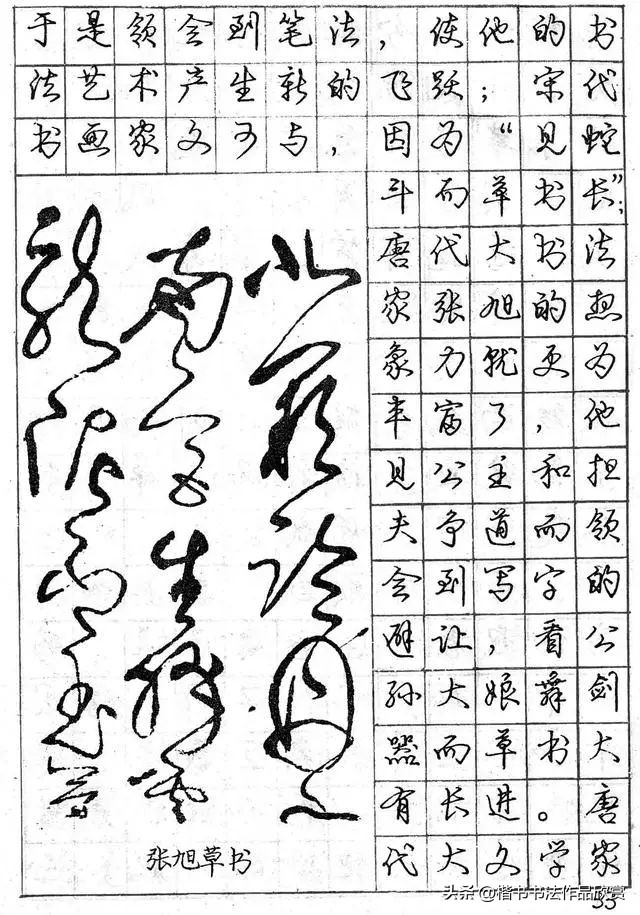 于是领会到笔法，使他的书
法艺术产生新的飞跃；宋代
书画家文可与，因为“见蛇
斗而草书长”；
唐代大书法
家张旭的想
象力就更为
丰富了，他
见公主和担
夫争道而领
会到写字的
避让，看公
孙大娘舞剑
器而草书大
有长进。唐
代大文学家
北阙临丹水
南宫生绛云
龙泥印玉简
张旭草书
头条@楷书书法作品欣赏
33